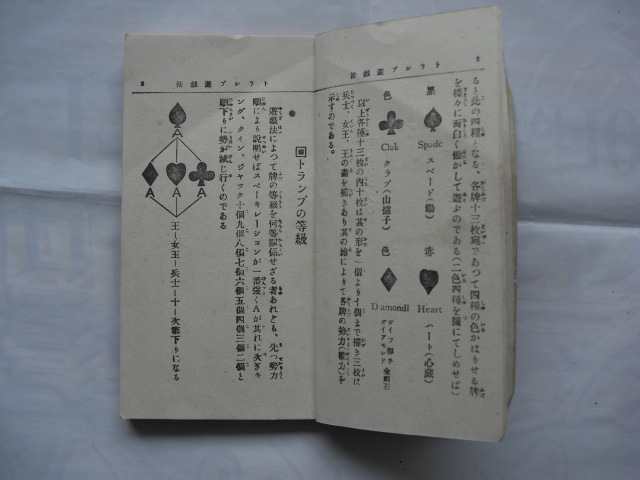 トランプ遊戲法
ると此の四種となる、各牌十三枚宛であつて四種の色かはりせる牌
を樣々に面白く働かして遊ぶのである(二色四種を圖にてしめせば)
黑
Spade
スペード(鋤)
赤
Heart
ハート(心臟)
色
Club
クラブ
色
Diamondl
ダイヤモンド
以上各種十三枚の内十枚は其の形を一個より十個まで描き三枚は
兵士、女王、王の畫を描きあり其の繪によりて各牌の勢力(權力)を
示すのである。
トランプ遊戲法
トランプの等級
遊戲法によつて牌の等級を何等關係せざる者あれども、先づ勢力
順により說明せばスペーキレーションが一番强くAが其れに次ぎキ
ング、クイン、ジヤック十個九個八個七個六個五個四個三個二個と
順下りに勢が減じ行くのである
A
A
A
A
王―女王―兵士―十―次第下りになる